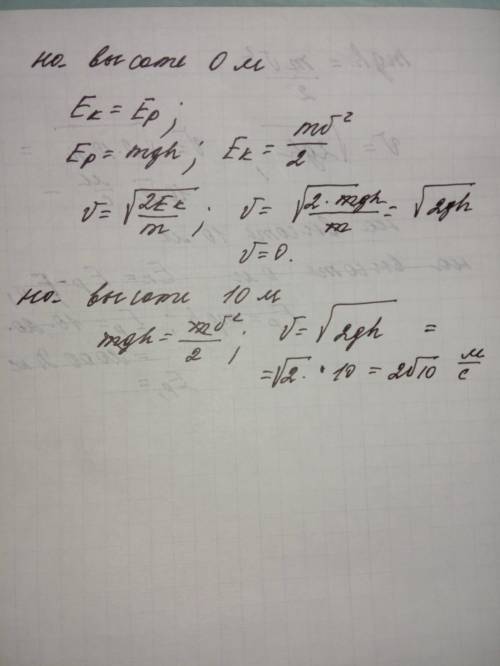 на высоте 0 м
Eк = Ep ;
Ep = mgh ; Eк = mv²/2
v = √(2Eк/m) ; v = √(2·mgh/m) = √2gh
v = 0.
на высоте 10 м
mgh = mv²/2 ; v = √2gh =
= √2 · 10 = 2√10 м/с